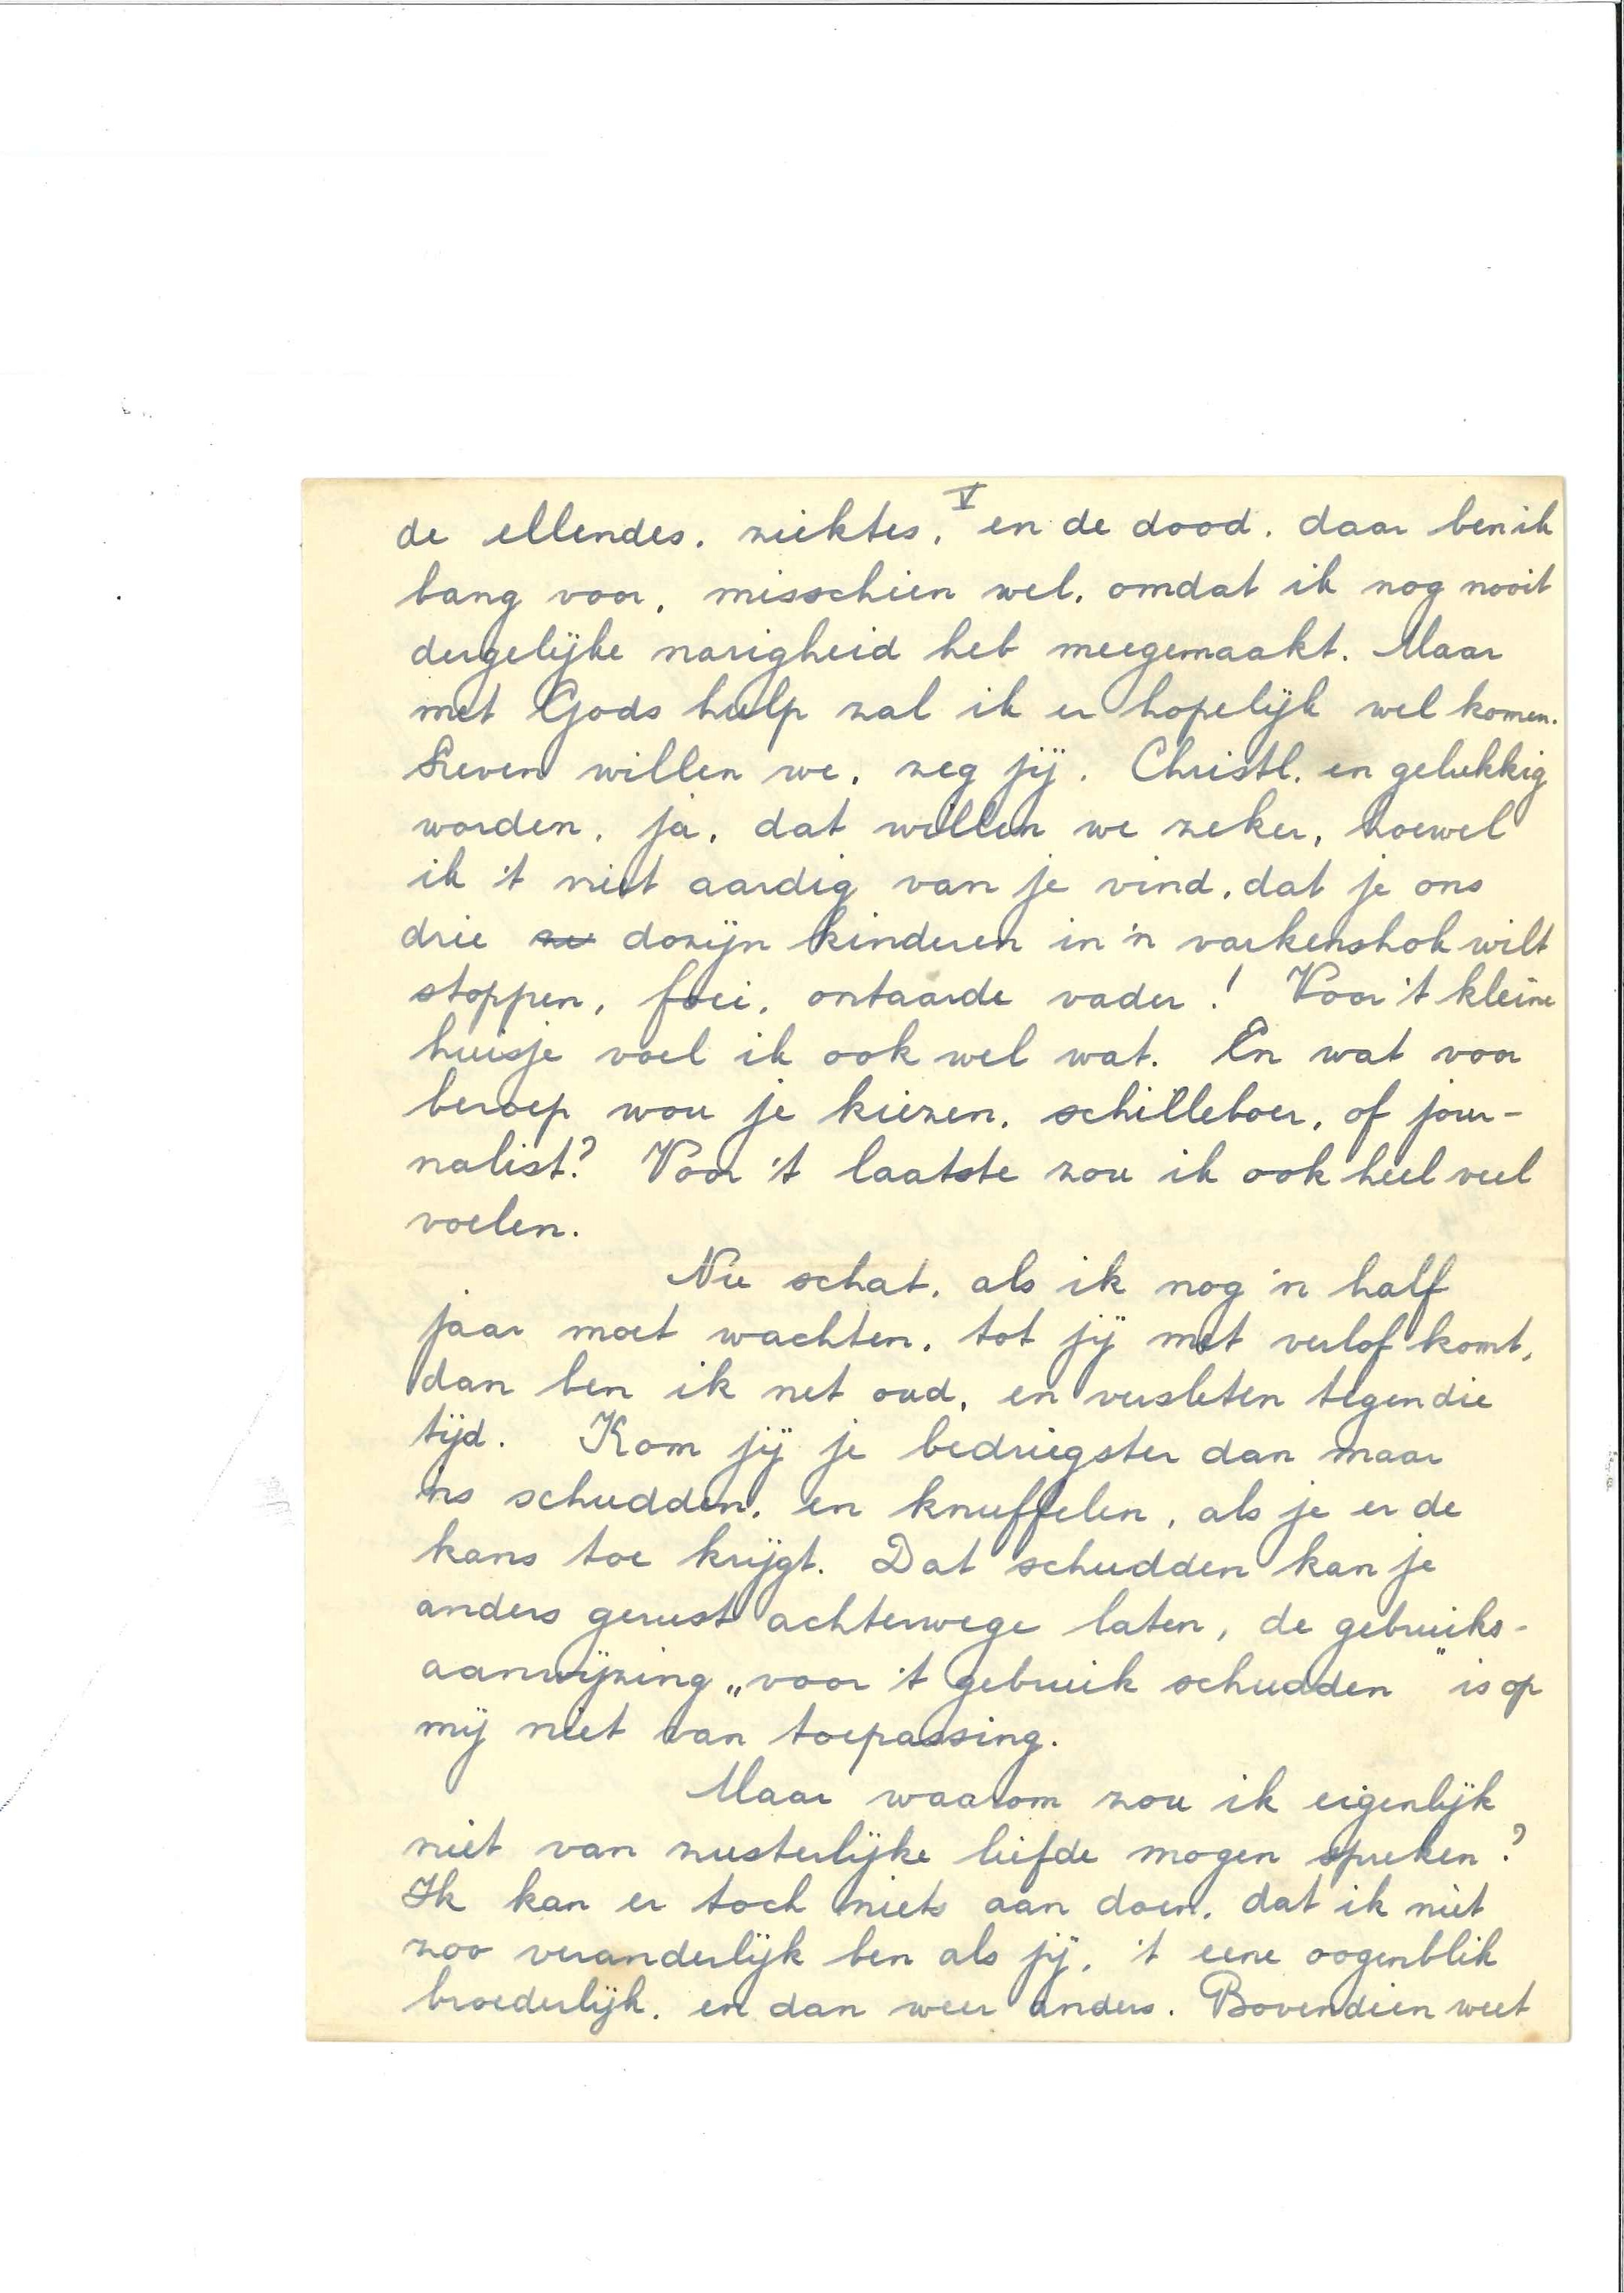 V
de ellendes, ziektes, en de dood, daar ben ik
bang voor, misschien wel, omdat ik nog nooit
dergelijke narigheid heb meegemaakt. Maar
met Gods hulp zal ik er hopelijk wel komen.
Leven willen we, zeg jij. Christl. en gelukkig
worden, ja, dat willen we zeker, hoewel
ik 't niet aardig van je vind, dat je ons
drie ze dozijn kinderen in 'n varkenshok wilt
stoppen, foei, ontaarde vader! Voor 't kleine
huisje voel ik ook wel wat. En wat voor
beroep wou je kiezen, schilleboer, of jour-
nalist? Voor 't laatste zou ik ook heel veel
voelen.
Nu schat, als ik nog 'n half
jaar moet wachten, tot jij met verlof komt,
dan ben ik net oud, en versleten tegen die
tijd. Kom jij je bedriegster dan maar
ns schudden, en knuffelen, als je er de
kans toe krijgt. Dat schudden kan je
anders gerust achterwege laten, de gebruiks-
aanwijzing „voor 't gebruik schudden" is op
mij niet van toepassing.
Maar waarom zou ik eigenlijk
niet van zusterlijke liefde mogen spreken?
Ik kan er toch niets aan doen, dat ik niet
zoo veranderlijk ben als jij, 't eene oogenblik
broederlijk, en dan weer anders. Bovendien weet